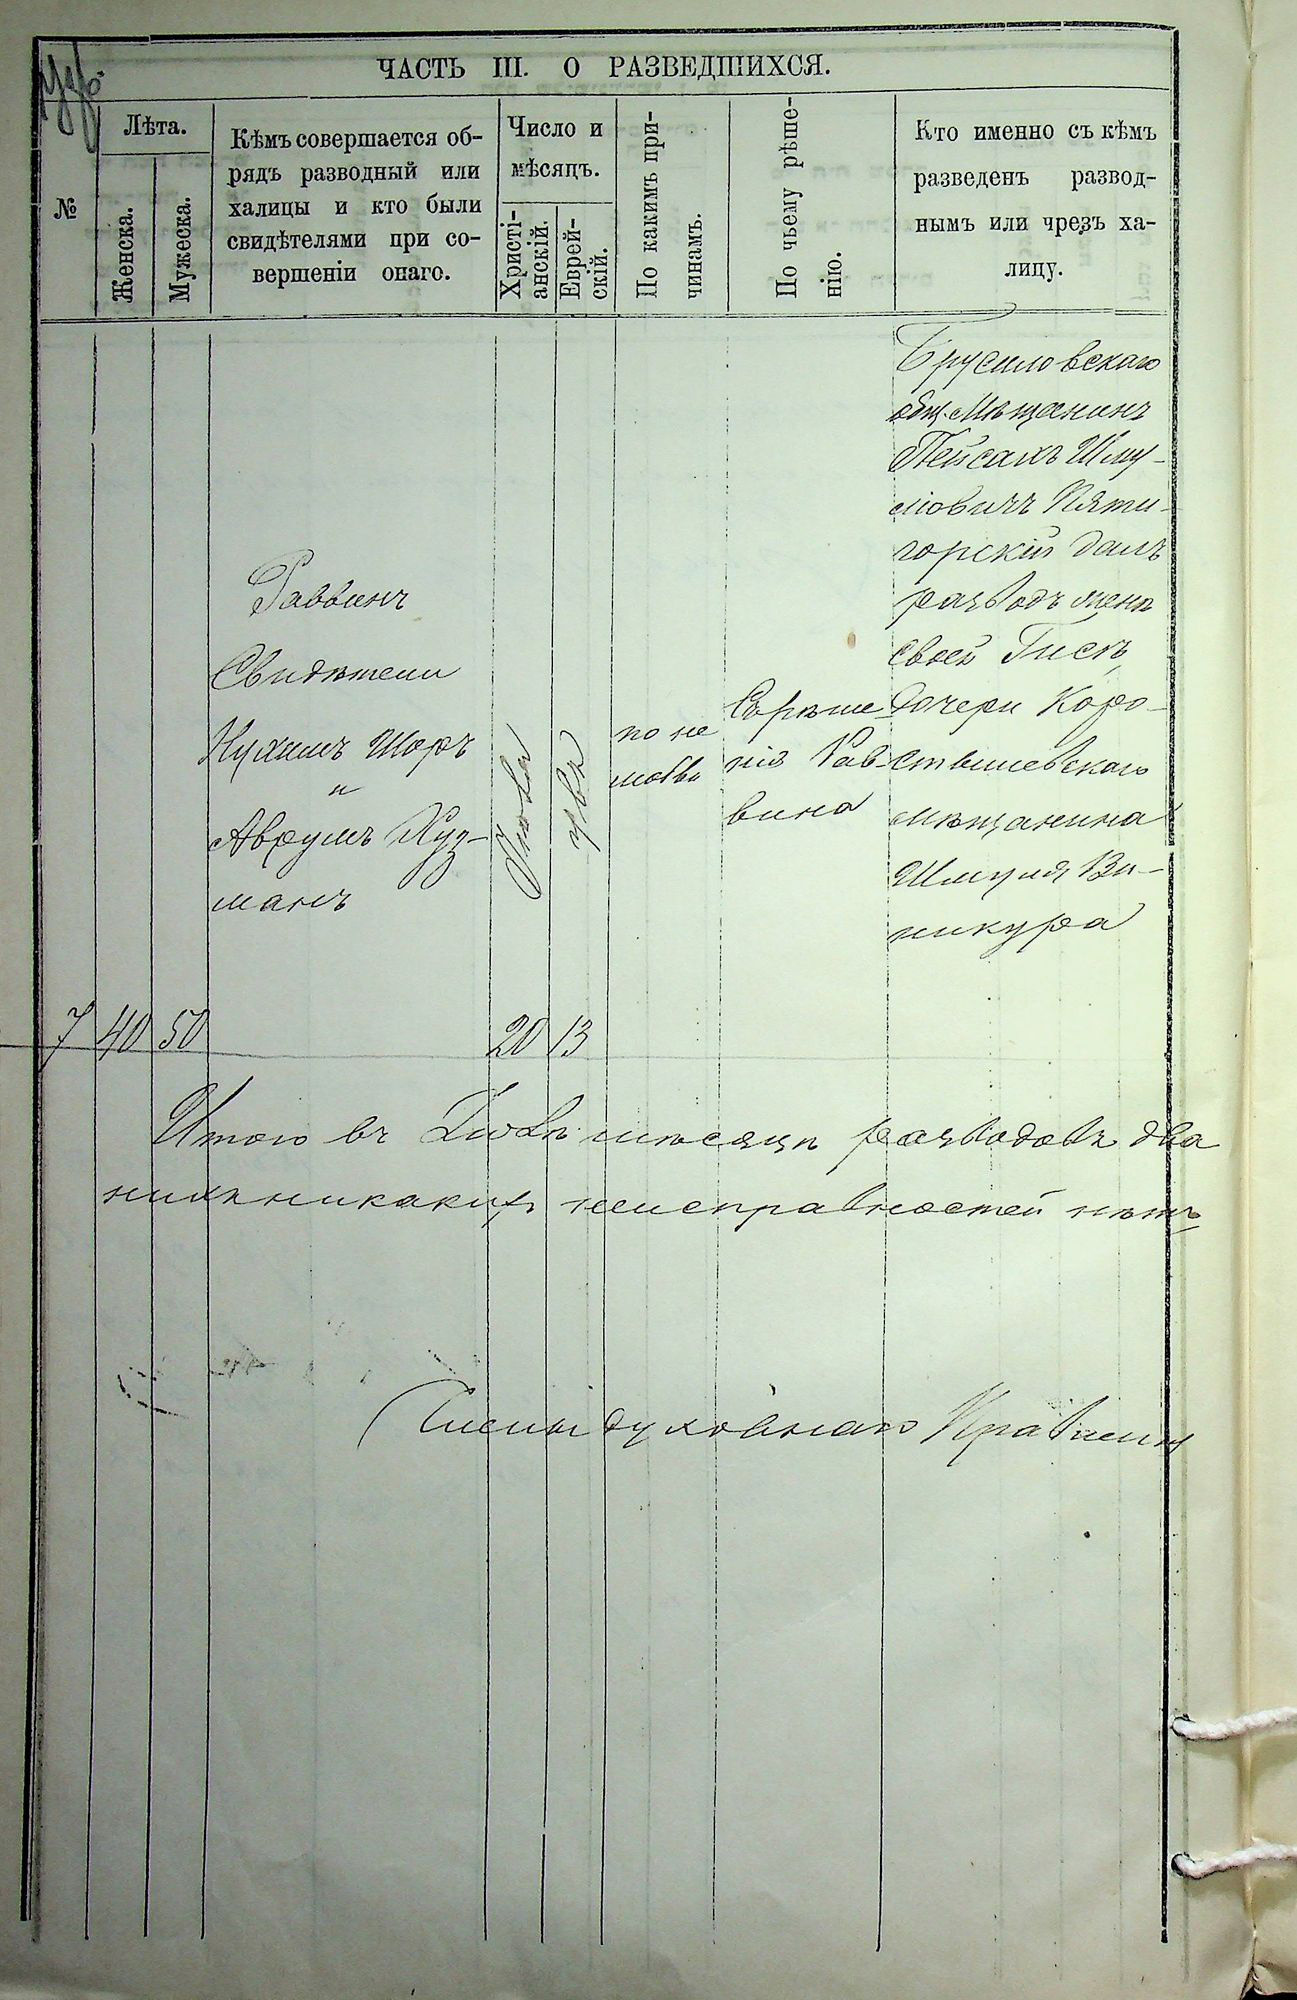 ЧАСТЬ III. О РАЗВЕДШИХСЯ.
№
Лѣта.
Женска.
Мужеска.
Кѣмъ совершается об-
рядъ разводный или
халицы и кто были
свидѣтелями при со-
вершеніи онаго.
Число и
мѣсяцъ.
Христі-
анскій.
Еврей-
скій.
По какимъ при-
чинамъ.
По чьему рѣше-
нію.
Кто именно съ кѣмъ
разведенъ развод-
нымъ или чрезъ ха-
лицу.
7
40
50
Раввинъ
Свидѣтели
Нухимъ Шоръ
и
Аврумъ Куз-
манъ
20
13
по не
любви
Съ рѣше-
нія Рав-
вина
Брусиловскаго
общ. Мѣщанинъ
Пейсахъ Шму-
ловичъ Пяти-
горскій далъ
разводъ женѣ
своей
дочери Коро-
стышевскаго
мѣщанина
Шмуля Ви-
никура
Итого въ мѣсяцѣ разводовъ два
никакихъ неисправностей нѣтъ
Члены духовнаго Правленія